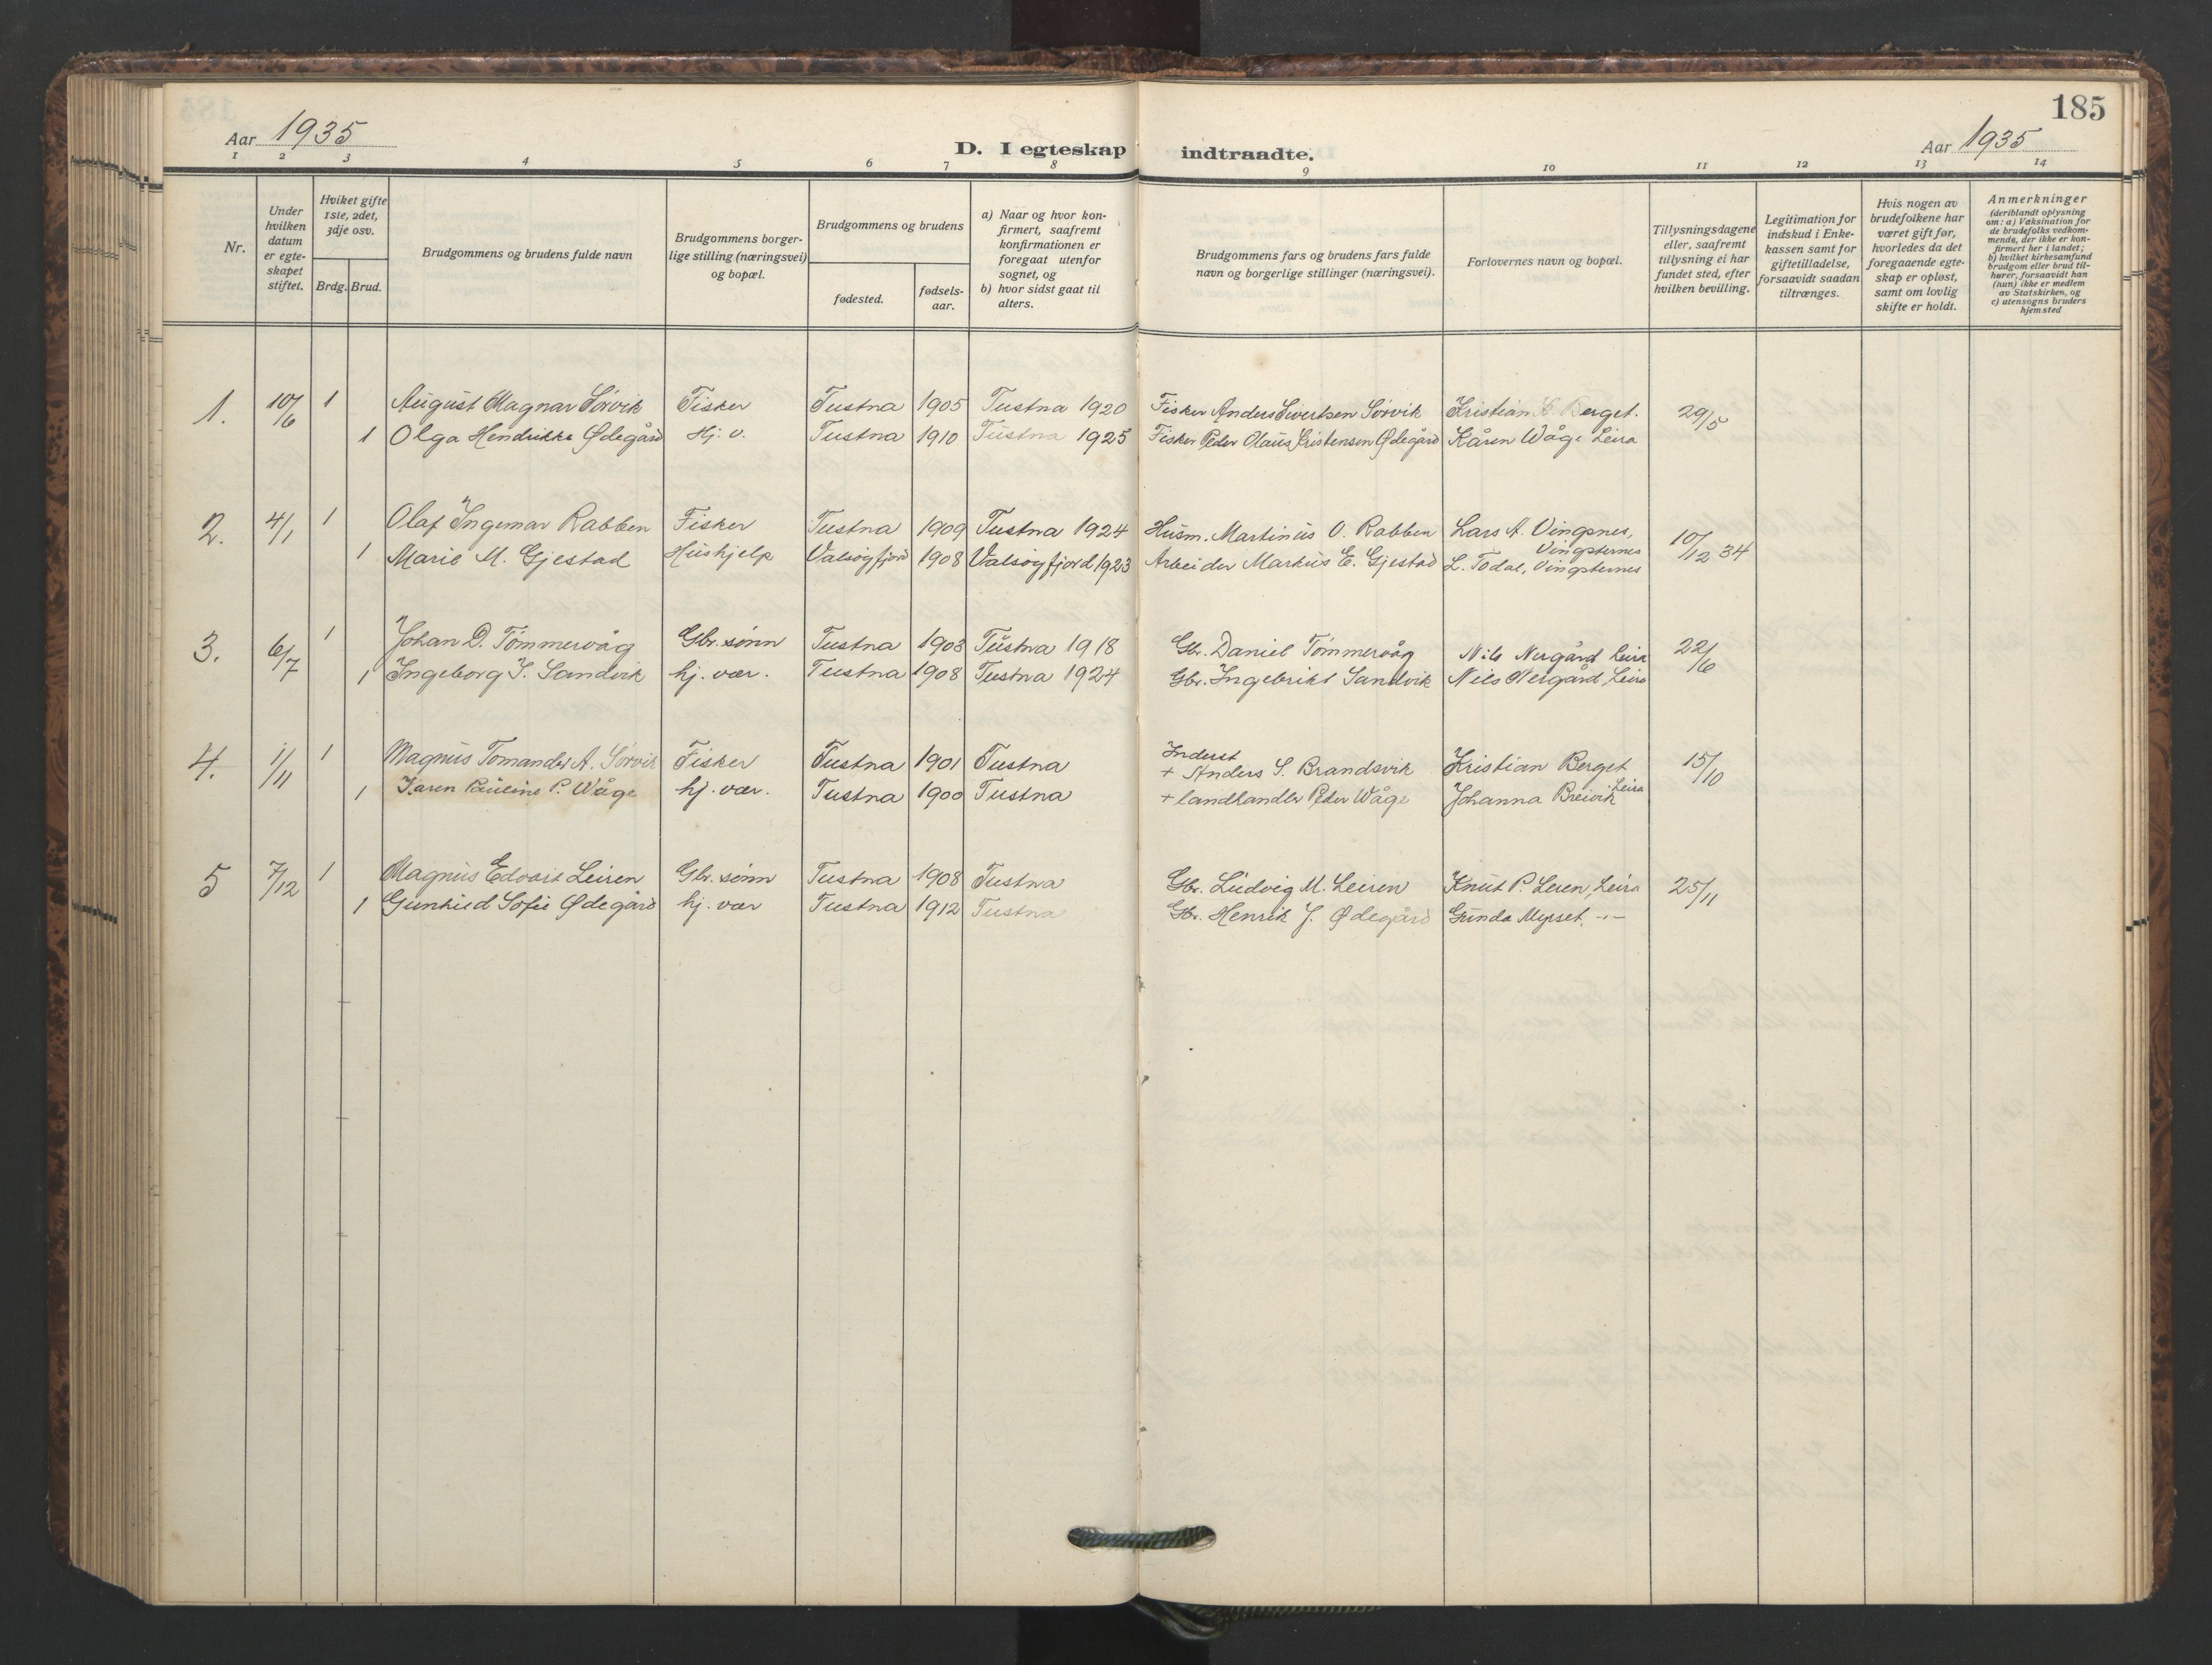 185
Aar 1935
D. I egteskap indtraadte.
Aar 1935
1 2 3 4 5 6 7 8 9 10 11 12 13 14
Nr.
Under hvilken datum er egteskapet stiftet.
Hviket gifte 1ste, 2det, 3dje osv.
Brdg. Brud.
Brudgommens og brudens fulde navn
Brudgommens borgerlige stilling (næringsvei) og bopæl.
Brudgommens og brudens
fødested.
fødselsaar.
a) Naar og hvor konfirmert, saafremt konfirmationen er foregaat utenfor sognet, og
b) hvor sidst gaat til alters.
Brudgommens fars og brudens fars fulde navn og borgerlige stillinger (næringsvei).
Forlovernes navn og bopæl.
Tillysningsdagene eller, saafremt tillysning ei har fundet sted, efter hvilken bevilling.
Legitimation for indskud i Enkekassen samt for giftetilladelse, forsaavidt saadan tiltrænges.
Hvis nogen av brudefolkene har været gift før, hvorledes da det foregaaende egteskap er opløst, samt om lovlig skifte er holdt.
Anmerkninger
(deriblandt oplysning om: a) Vaksination for de brudefolks vedkommende, der ikke er konfirmert her i landet;
b) hvilket kirkesamfund brudgom eller brud tilhører, forsaavidt han (hun) ikke er medlem av Statskirken, og
c) utensogns bruders hjemsted
1. 10/6 1 August Magnar Sørvik Fisker Tustna 1905 Tustna 1920 Fisker Anders Sivertsen Sørvik Kristian Berget. 29/5
1 Olga Hendrikke Ødegård Hj. v. Tustna 1910 Tustna 1925 Fisker Peder Olaus Kristensen Ødegård Kåren Wåge Leira
2. 4/1 1 Olaf Ingemar Rabben Fisker Tustna 1909 Tustna 1924 Husm. Martinus O. Rabben Lars A. Vingsnes, Vingsternes 10/12 34
1 Marie M. Gjestad Hushjelp Valsøyfjord 1908 Valsøyfjord 1923 Arbeider Markus E. Gjestad L. Todal, Vingsternes
3. 6/7 1 Johan D. Tømmervåg Gbr. sønn Tustna 1903 Tustna 1918 Gbr. Daniel Tømmervåg Nils Nergård Leira 22/6
1 Ingeborg I. Sandvik hj. vær. Tustna 1908 Tustna 1924 Gbr. Ingebrikt Sandvik Nils Nergård, Leira
4. 1/11 1 Magnus Tomander A. Sørvik Fisker Tustna 1901 Tustna Inderst + Anders S. Brandsvik Kristian Berget 15/10
1 Karen Pauline P. Wåge hj. vær. Tustna 1900 Tustna + landhandler Peder Wåge Johanna Breivik Leira
5 7/12 1 Magnus Edvart Leiren Gbr. sønn Tustna 1908 Tustna Gbr. Ludvig M. Leiren Knut P. Leren, Leira 25/11
1 Gunhild Sofie Ødegård hj. vær Tustna 1912 Tustna Gbr. Henrik J. Ødegård Gunda Myrset, -"-